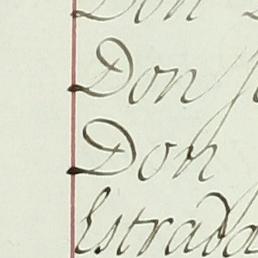 Don
Don
Don
Estrada